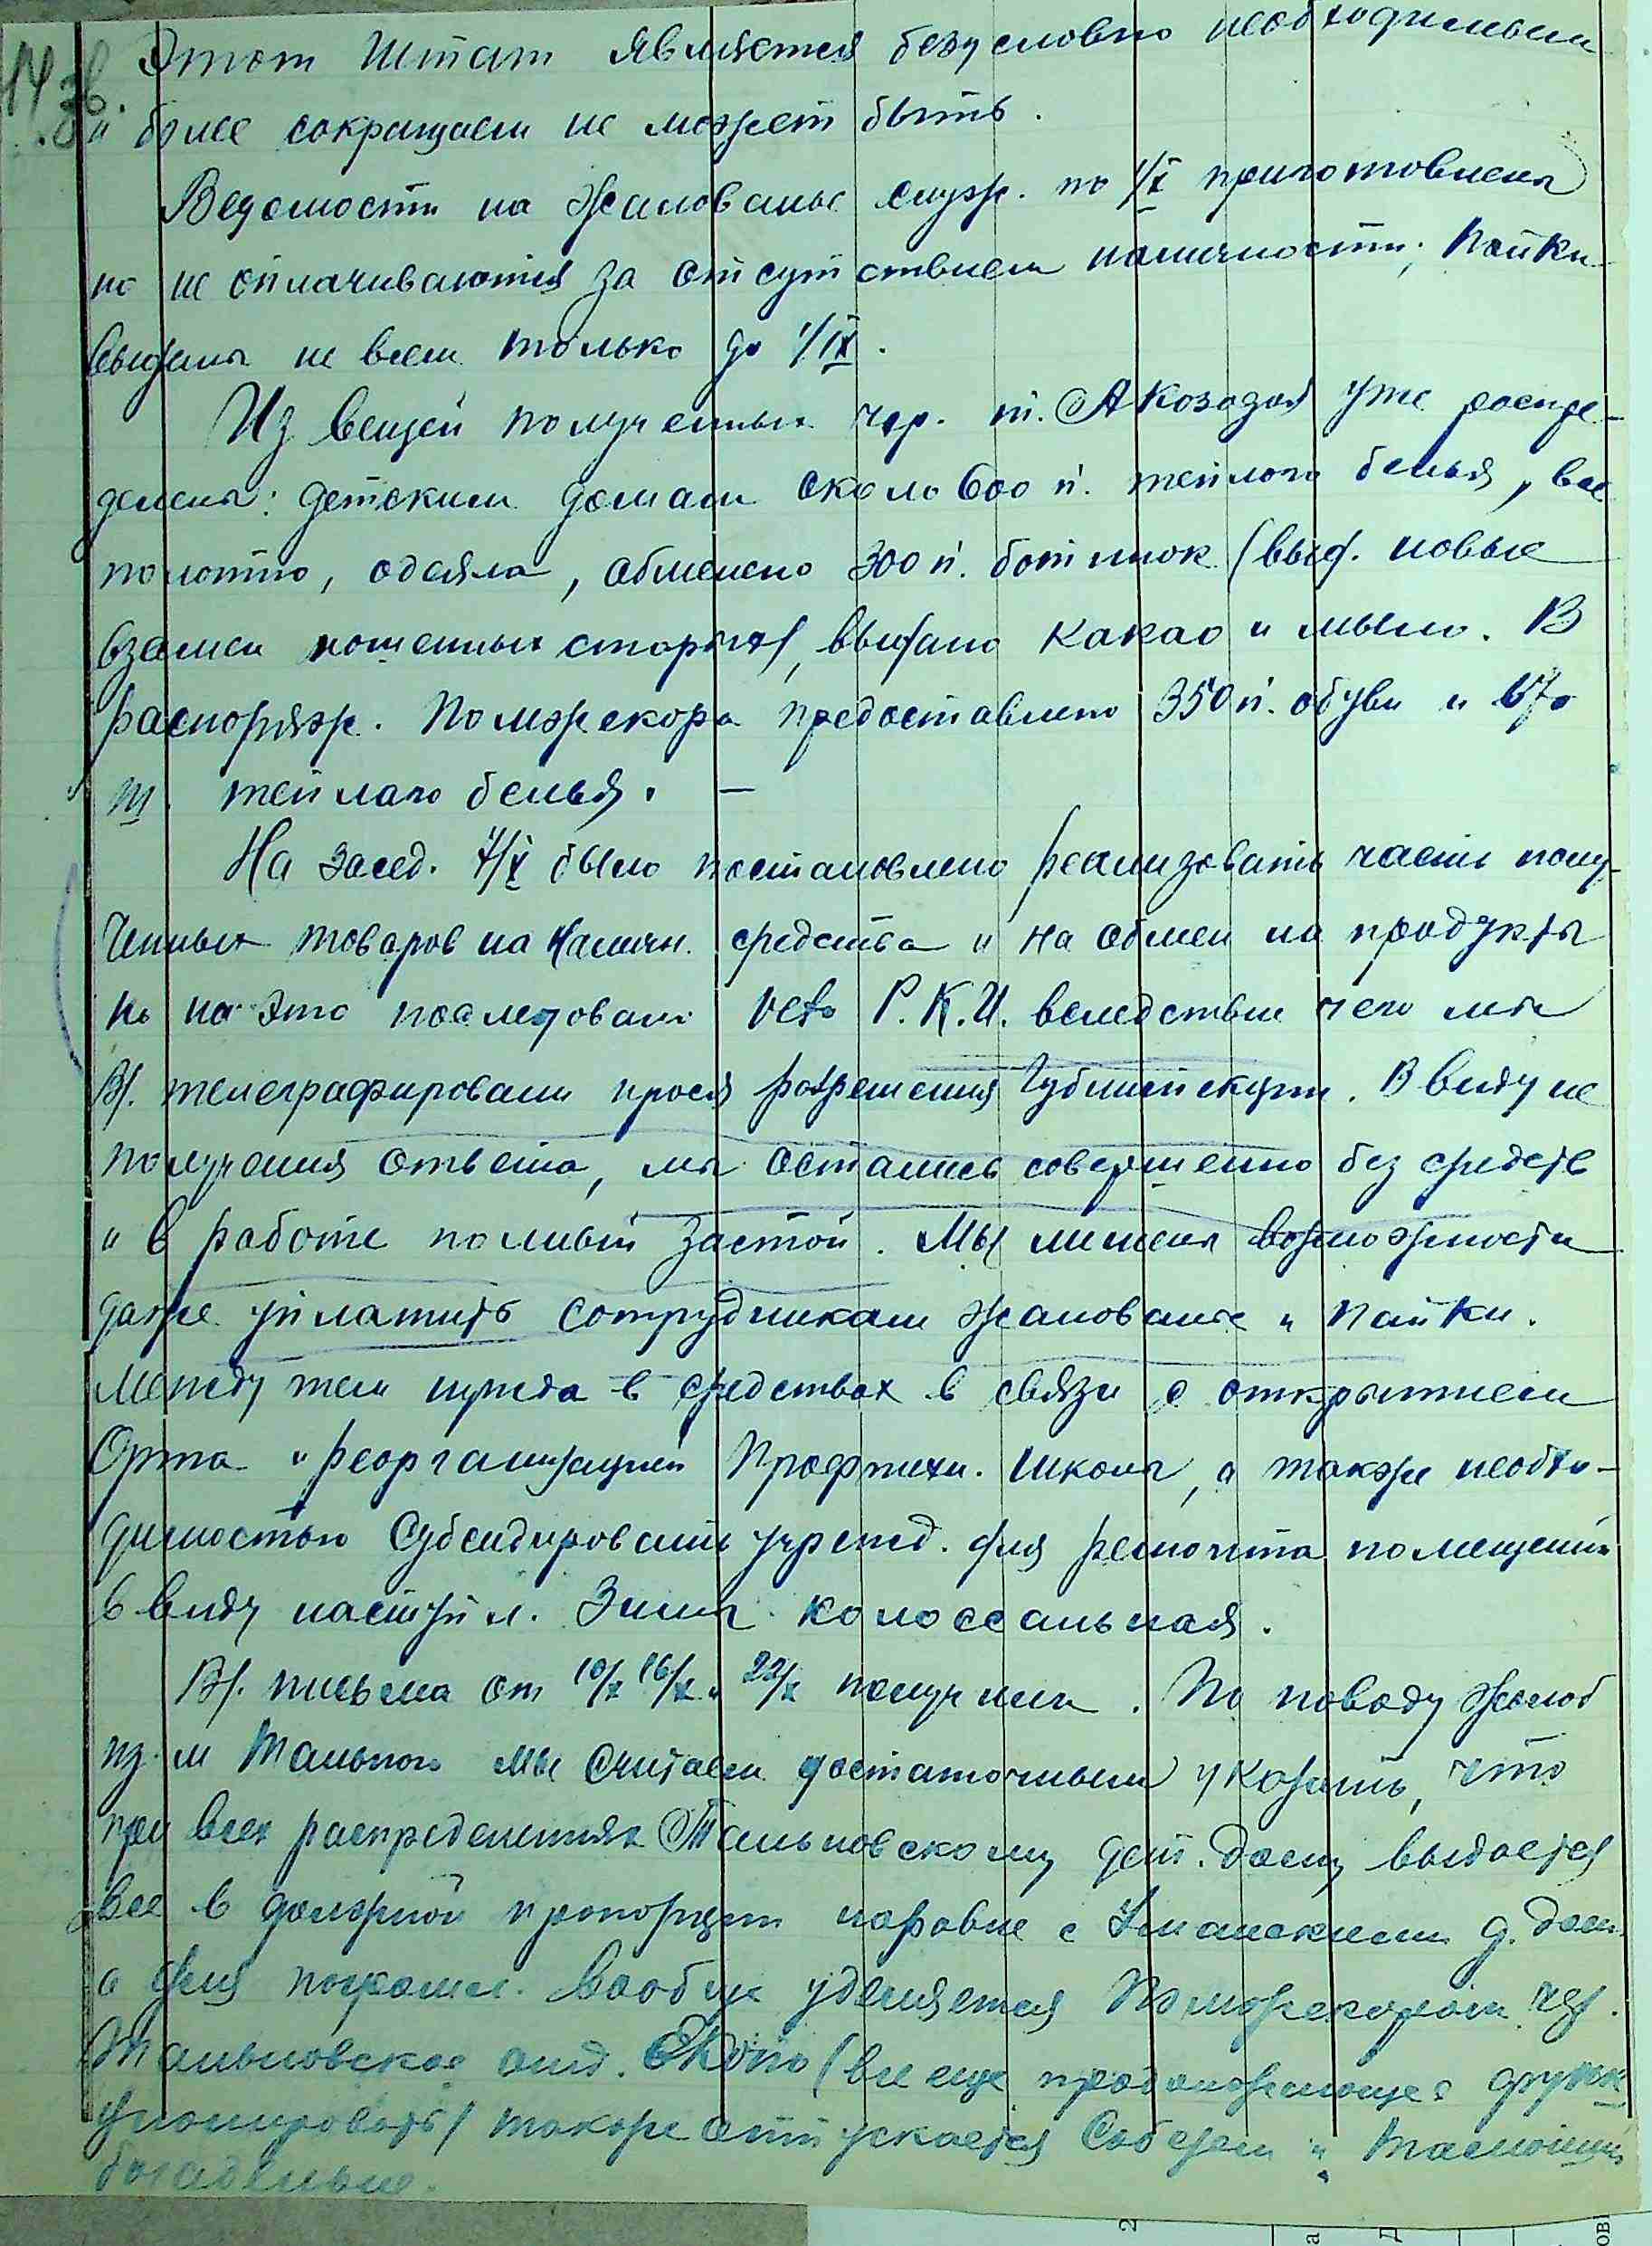 14 зв.
Этот штат является безусловно необходимым
и более сокращаем не может быть.
Ведомости на жалованье служ. по 1/X приготовлены
но не оплачиваются за отсутствием наличности; Пайки
выданы не всем только до 1/IX.
Из вещей полученных чер. т. А Козодоя уже распре-
делены: детским домам около 600 п. теплого белья, все
полотно, одеяла, обменено 300 п. ботинок (выд. новые
взамен ношенных старых), выдано какао и мыло. В
распоряж. Помжекора предоставлено 350 п. обуви и
ш. теплаго белья. —
На засед. 7/X было постановлено реализовать часть полу-
ченных товаров на наличн. средства и на обмен на продукты
но на это последовало veto Р.К.И. вследствие чего мы
Вы. телеграфировали прося разрешения Губинспекции. В виду не
получения ответа, мы остались совершенно без средств
и в работе полный застой. Мы лишены возможности
даже уплатить сотрудникам жалованье и пайки.
Между тем нужда в средствах в связи с открытием
Орта и реорганизацией Профтехн. школы, а также необхо-
димостью субсидировать учрежд. для ремонта помещений
в виду наступл. Зимы колоссальная.
Вы. письма от 10/X 16/X и 22/X получили. По поводу жалоб
из м Тального мы считаем достаточным указать, что
при всех распределениях Тальновскому дет. дому выдается
все в должной пропорции наравне с Уманскими д. дом.
а для погромл. вообще уделяется Помжекором чер.
Тальновское отд. ЕКопо (все еще продолжающее функ
ционировать) также отпускается Собезом и Тальновской
богадельне.